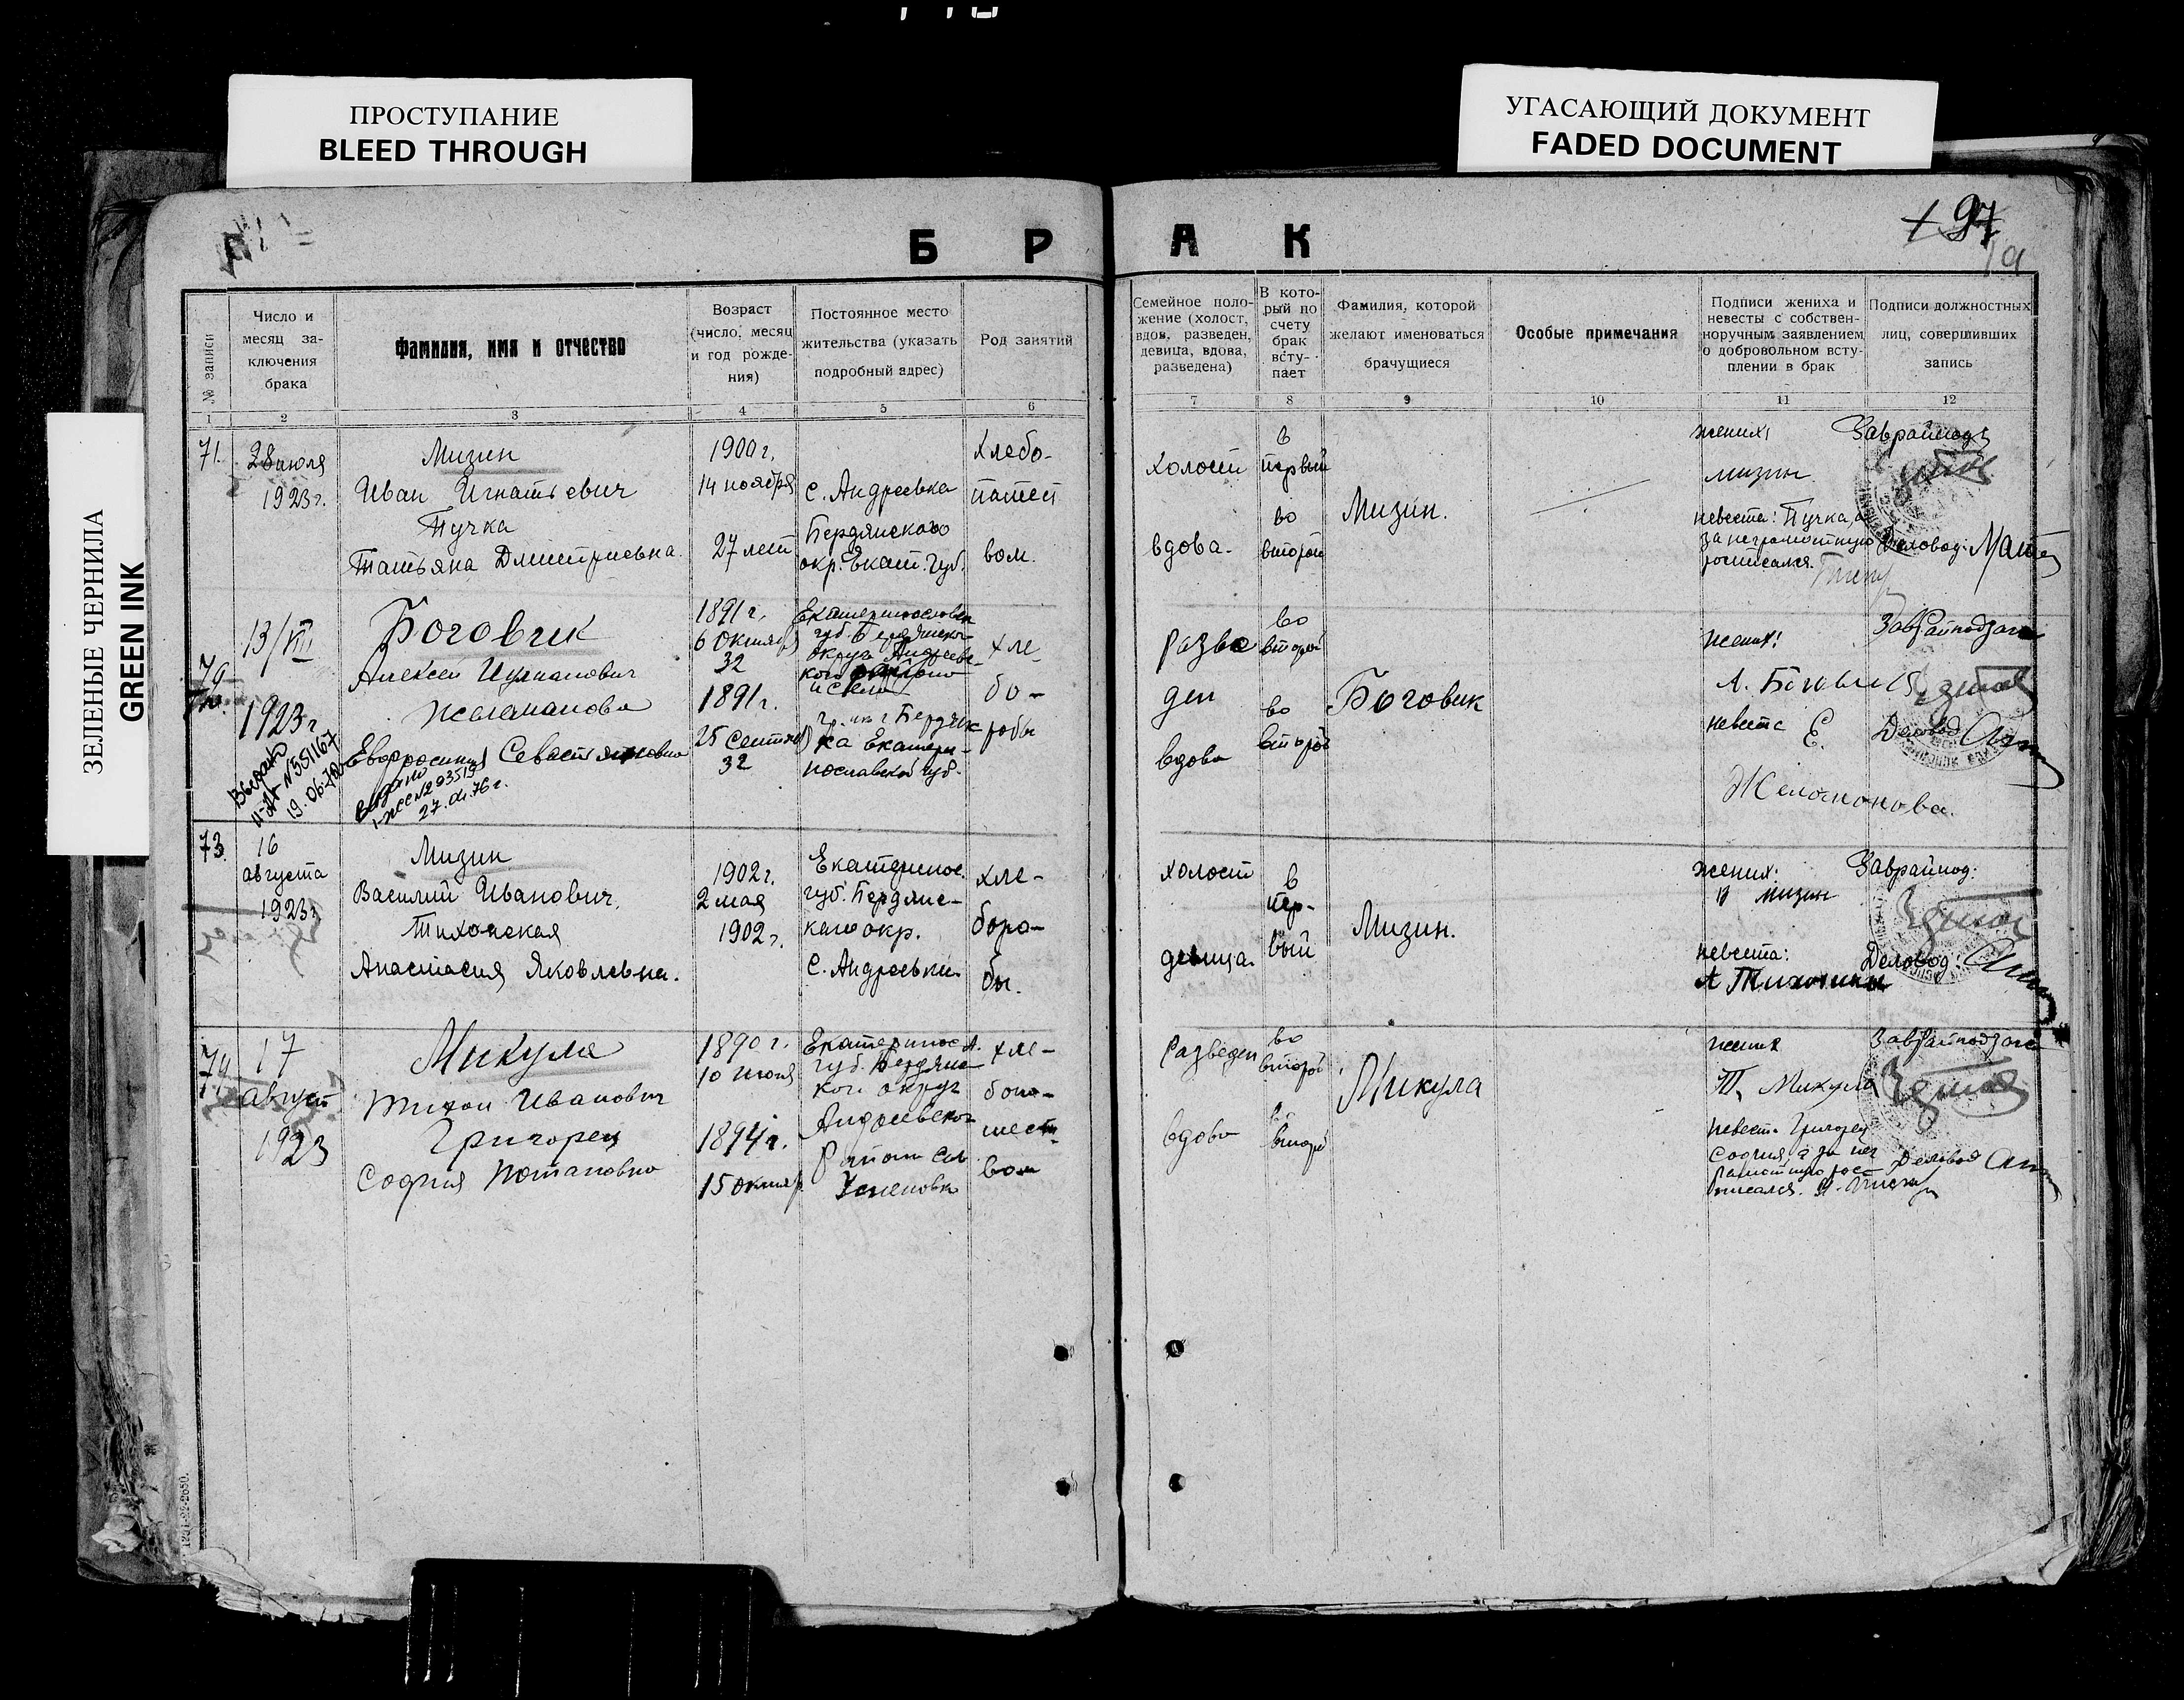 ПРОСТУПАНИЕ
BLEED THROUGH
УГАСАЮЩИЙ ДОКУМЕНТ
FADED DOCUMENT
ЗЕЛЕНЫЕ ЧЕРНИЛА
GREEN INK
БРАК
97
№ записи
Число и месяц заключения брака
Фамилия, имя и отчество
Возраст
(число, месяц
и год рожде-
ния)
Постоянное место
жительства (указать
подробный адрес)
Род занятий
Семейное поло-
жение (холост,
вдов, разведен,
девица, вдова,
разведена)
В кото-
рый по
счету
брак
всту-
пает
Фамилия, которой
желают именоваться
брачущиеся
Особые примечания
Подписи жениха и
невесты с собствен-
норучным заявлением
о добровольном всту-
плении в брак
Подписи должностных
лиц, совершивших
запись
1 2 3 4 5 6 7 8 9 10 11 12
71.
28 июля
1923 г.
Мизин
Иван Игнатьевич
Пучка
Татьяна Дмитриевна
1900 г.
14 ноября
27 лет
с. Андреевка
Бердянского
окр. Екат. губ.
хлебо-
пашест
вом.
холост
вдова.
в
первый
во
второй
Мизин.
жених:
мизин
невеста: Пучка, а
за неграмотную
росписался.
Завраймод:
Деловод:
13/VIII
1923 г
Боговик
Алексей
Желаманова
Евфросиния Севастьяновна
Выдано
27.01.76 г.
19.06.72
1891 г.
6 Октября
32
1891 г.
25 Сентяб
32
Екатеринославск
губ. Бердянско
округа Андреев-
кого
и села
ка Екатери-
нославской губ.
хле-
бо-
робы
разве
ден
вдова
во
второй
во
второй
Боговик
жених:
А. Боговик
невеста Е.
Желоманова.
Деловод
73.
16
августа
1923 г
Мизин
Василий Иванович.
Тихонская
Анастасия Яковлевна.
1902 г.
2 мая
1902 г.
Екатеринос.
губ. Бердянс-
каго окр.
с. Андреевки
хле-
боро-
бы.
холост
девица.
в
пер-
вый
Мизин.
жених:
В мизин
невеста:
Завраймод:
Деловод
74
17
август
1923
Микула
Тихон Иванович
Григорец
София Потаповна
1890 г.
10 июня
1894 г.
15 октяб
Екатериносл.
губ. Бердянс
кой округ
Андреевског
Района сел
Успеновк
хле-
бопа-
шест-
вом
Разведен
вдова
во
второй
во
второй
Микула
жених
Т. Микула
невеста Григорец
София, а за нег
рамотную рос-
писался.
Деловод